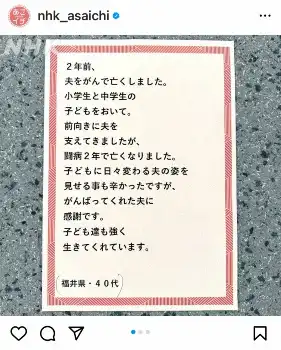 nhk_asaichi
NHK
2年前、
夫をがんで亡くしました。
小学生と中学生の
子どもをおいて。
前向きに夫を
支えてきましたが、
闘病2年で亡くなりました。
子どもに日々変わる夫の姿を
見せる事も辛かったですが、
がんばってくれた夫に
感謝です。
子ども達も強く
生きてくれています。
(福井県・40代)